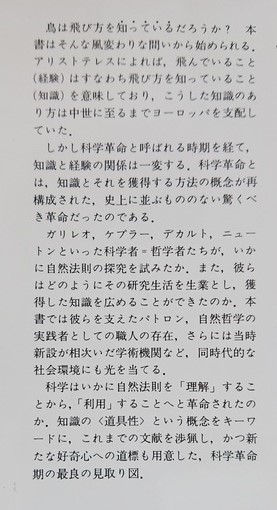 鳥は飛び方を知っているだろうか？　本
書はそんな風変わりな問いから始められる．
アリストテレスによれば，飛んでいること
（経験）はすなわち飛び方を知っていること
（知識）を意味しており，こうした知識のあ
り方は中世に至るまでヨーロッパを支配し
ていた．
しかし科学革命と呼ばれる時期を経て，
知識と経験の関係は一変する．科学革命と
は，知識とそれを獲得する方法の概念が再
構成された，史上に並ぶもののない驚くべ
き革命だったのである．
ガリレオ，ケプラー，デカルト，ニュー
トンといった科学者＝哲学者たちが，いか
に自然法則の探究を試みたか．また，彼ら
はどのようにその研究生活を生業とし，獲
得した知識を広めることができたのか．本
書では彼らを支えたパトロン，自然哲学の
実践者としての職人の存在，さらには当時
新設が相次いだ学術機関など，同時代的な
社会環境にも光を当てる．
科学はいかに自然法則を「理解」するこ
とから，「利用」することへと革命されたの
か．知識の〈道具性〉という概念をキーワ
ードに，これまでの文献を渉猟し，かつ新
たな好奇心への道標も用意した，科学革命
期の最良の見取り図．